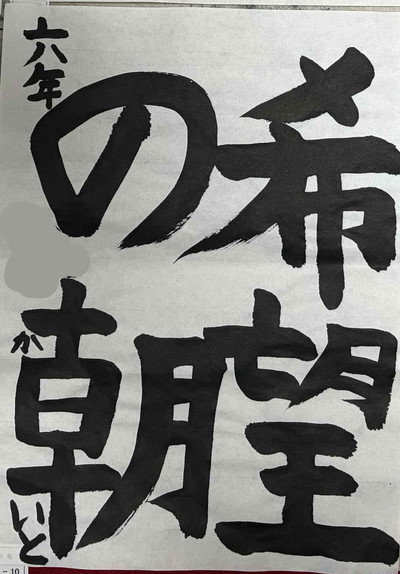 希望
の朝
六年
かいと
- 10